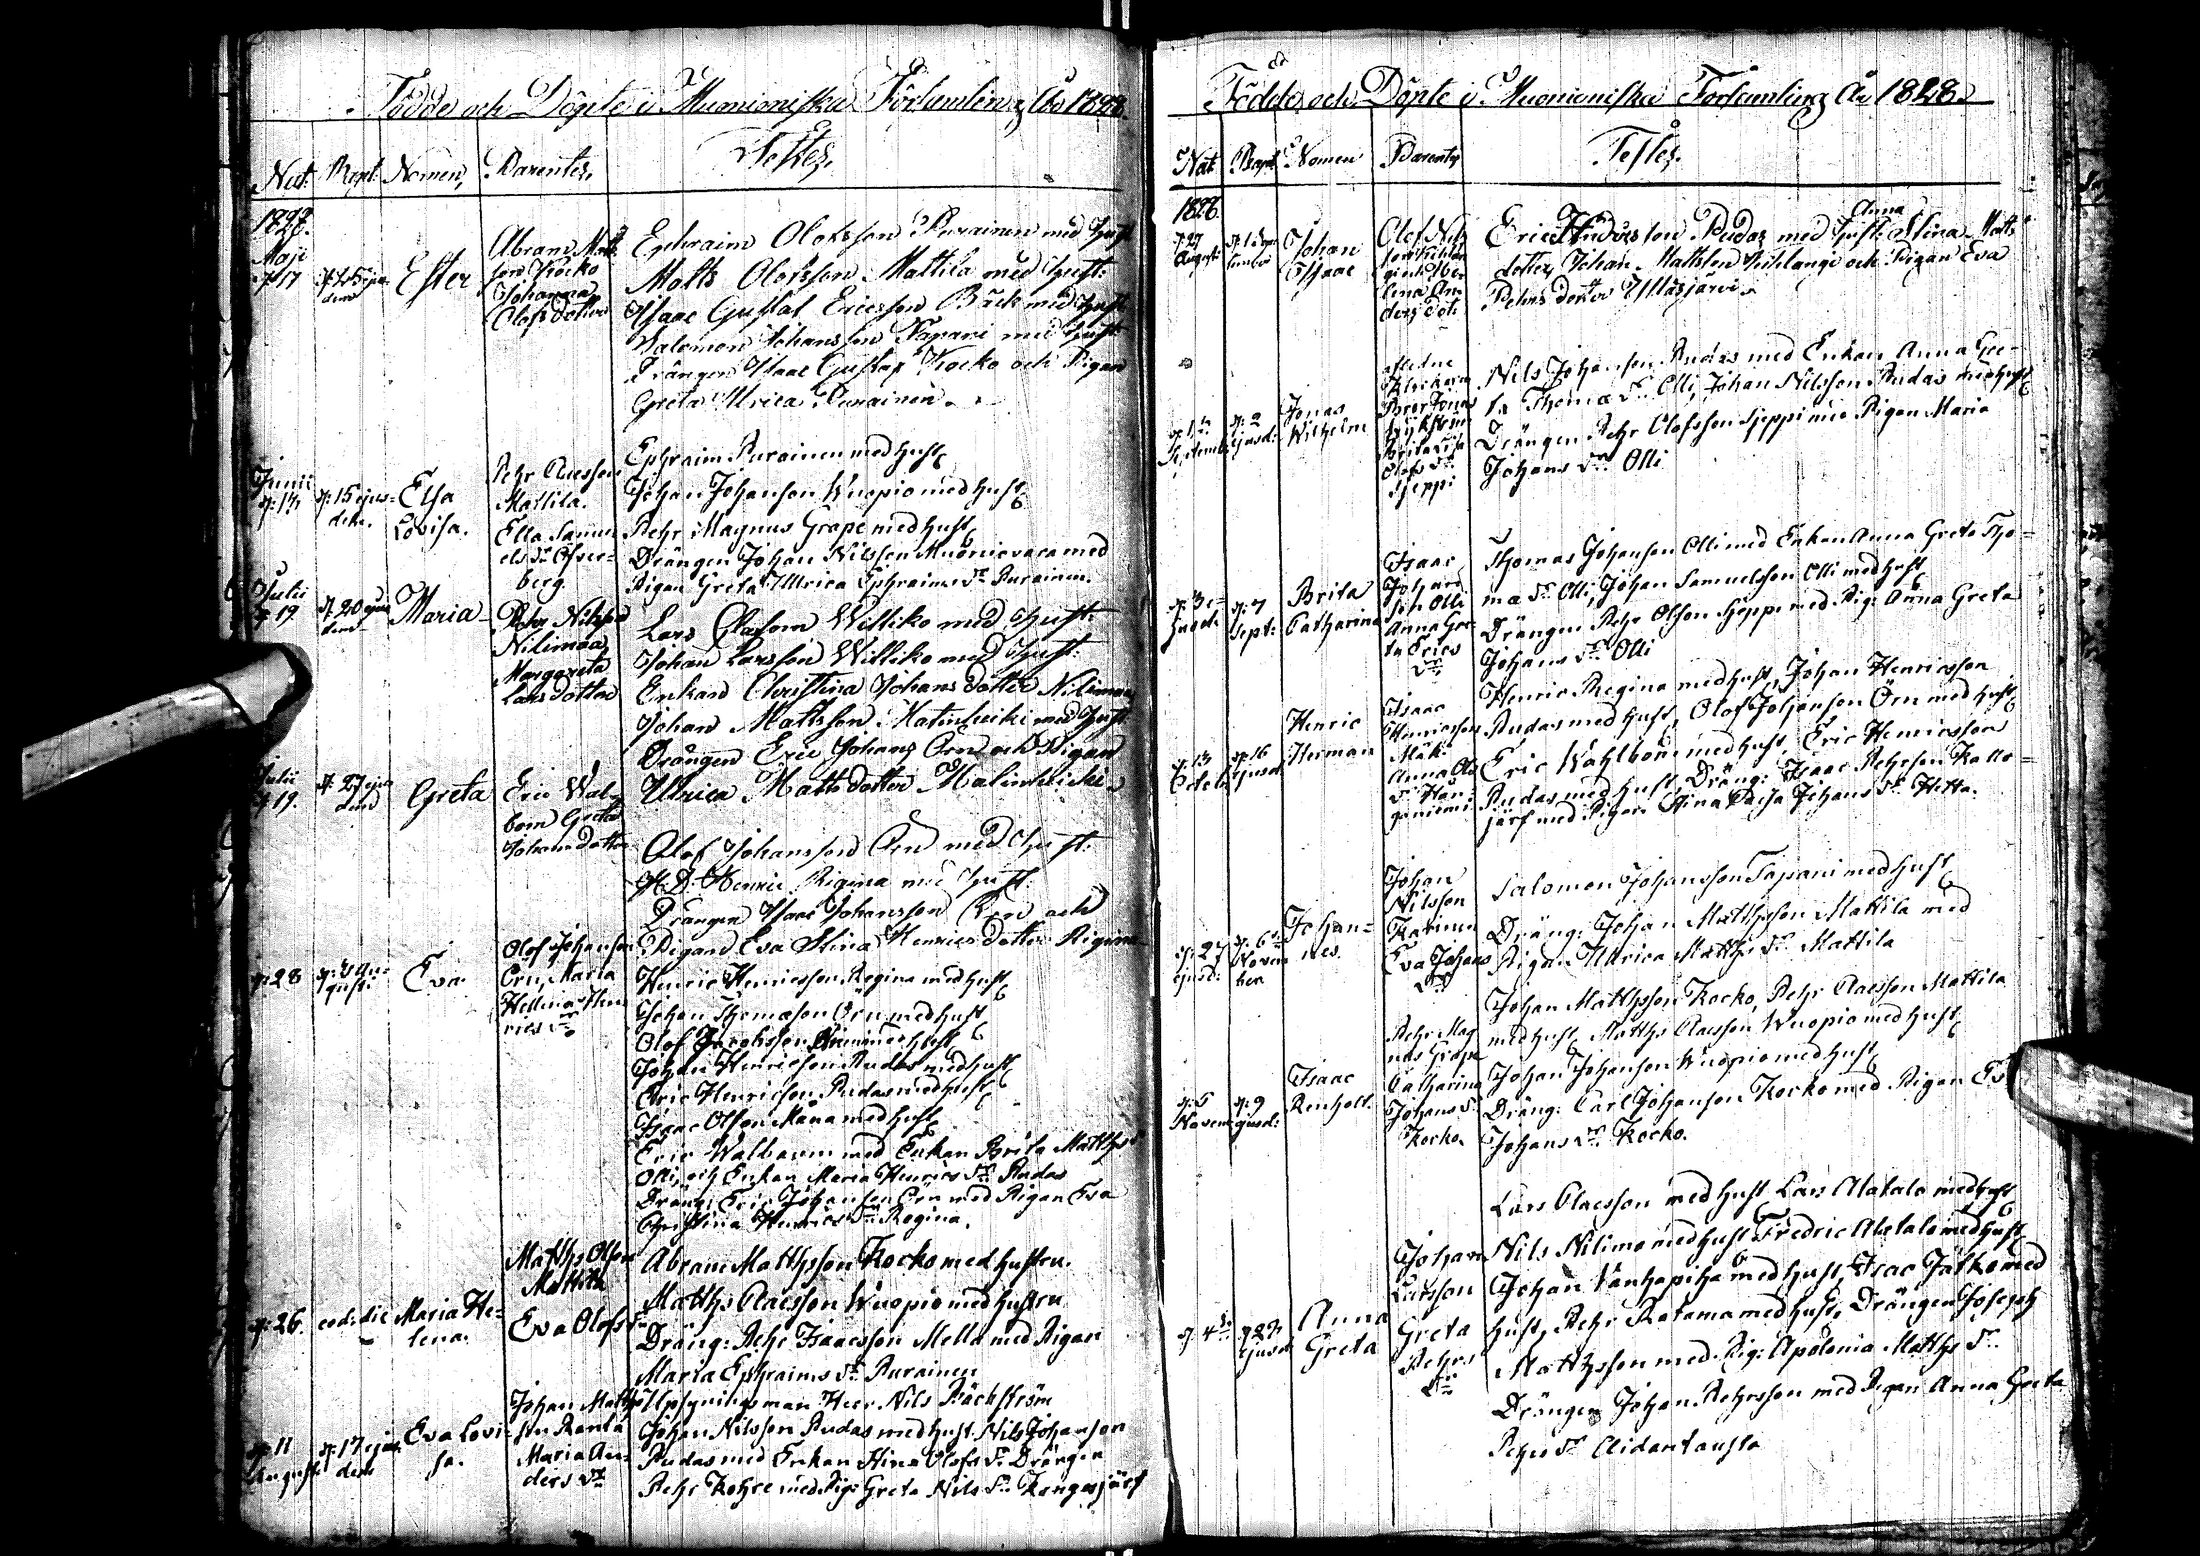 Födde och Döpte i Muonioniska Församling År 1828.
Nat: Bapt: Nomen, Parentes, Testes,
1828.
Maji
d. 17 d. 25 ejusdem Ester
Abram Matsson Kocko
Johanna
Olofs dotter
Ephraim Olofsson Purainen med hust:
Matts Olofsson Mattila med hust:
Isaac Gustaf Ericsson Bäck med hust:
Salomon Johansson Tapani med hust:
Drängen Isaac Gustaf Kocko och Pigan
Greta Ulrica Purainen.
Junii
d: 13 d: 15 ejusdem. Elsa
Lovisa.
Pehr Claesson
Mattila.
Ella Samuels dr Öfverberg
Ephraim Purainen med hust,
Johan Johanson Wuopio med hust,
Pehr Magnus Grape med hust,
Drängen Johan Nilsson Muonievara med
Pigan Greta Ullrica Ephraims dr Purainen.
Julii
d. 19. d. 20 ejusdem Maria
Pehr Nilsson
Nilimaa
Margareta
Lars dotter
Lars Olofsson Williko med hust:
Johan Larsson Williko med hust:
Enkan Christina Johans dotter Nilimaa
Johan Mattsson Matinheiki med hust
Drängen Eric Johans Örn och Pigan
Ulrica Matts dotter Malinheiki.
Julii
d. 19. d. 27 ejusdem Greta
Eric Walborn Greta
Johans dotter
Olof Johansson Örn med hust:
H. D. Henric Regina med hust:
Drängen Isaac Johansson Örn och
Pigan Eva Stina Henrics dotter Regina
d: 28 d: 3 August: Eva
Olof Johanson
Örn, Maria
Hellena Henrics dr
Henric Henricsson Regina med hust,
Johan Thomason Örn med hust
Olof Jacobsson hust,
Johan Henricson Rudas med hust,
Eric Henricson Rudas med hust,
Isaac Olson Mana med hust,
Eric Walbaum med Enkan Brita Matths dr
Olli, och Enkan Maria Henrics dr Rudas
Dräng: Eric Johanson Örn med Pigan Eva
Christina Henrics dr Regina.
d: 26. eod: die Maria Helena.
Matths Olson
Mattila
Eva Olofs dr
Abram Matthsson Kocko med hustru.
Matths Claesson Wuopio med hustru
Dräng: Pehr Isaacsson Mella med Pigan
Maria Ephraims dr Purainen
d: 11
Augusti d: 17 ejusdem Eva Lovisa.
Johan Matthsson Ranta
Maria Anders dr
Uppsyningsman Herr Nils Bäckström
Johan Nilsson Rudas med hust. Nils Johanson
Rudas med Enkan Stina Olofs dr Drängen
Pehr Kohre med Pig: Greta Nils dr Kangosjärf
Födde och Döpte i Muonioniska Församling År 1828.
Nat: Bapt: Nomen Parentes Testes.
1828.
d. 27
Augusti d. 1 September Johan
Isaac
Olof Nils
Anders dot:
Eric Andersson Rudas med hust: Anna Stina Matts
dotter, Johan Mattsson Kihlangi och Pigan Eva
Pehrs dotter Äkäsjärvi.
d: 1
September d: 2
ejusd: Jonas
Wilhelm
Brita Lisa
Olofs dr
Sjeppi
Nils Johanson Rudas med Enkan Anna Greta Thomæ dr Olli, Johan Nilsson Rudas med hust,
Drängen Pehr Olofsson Sjeppi med Pigan Maria
Johans dr Olli
d: 3
ejusd: d: 7
Sept: Brita
Catharina
Isaac
Johansson Olli
Anna Greta Erics
dr
Thomas Johanson Olli med Enkan Anna Greta Thomæ dr Olli, Johan Samuelsson Olli med hust,
Drängen Pehr Olson Sjeppi med Pig: Anna Greta
Johans dr Olli
d: 13
October d: 16
ejusd: Henric
Herman
Isaac
Henricsson
Mäki
Anna Olofs
dr Hangoniemi
Henric Regina med hust, Johan Henricsson
Rudas med hust, Olof Johanson Örn med hust,
Eric Wahlborn med hust, Eric Henricsson
Rudas med hust, Dräng: Isaac Pehrson Kattojärf med Pigan Stina Caisa Johans dr Hetta.
d: 27
ejusd: d: 6
November Johannes.
Johan
Nilsson
Karinen
Eva Johans
dr
Salomon Johansson Tapani med hust,
Dräng: Johan Matthsson Mattila med
Pigan Ulrica Matths dr Mattila
d: 5
November d: 9
ejusd: Isaac
Renholt.
Pehr Magnus Grape
Catharina
Johans dr
Kocko.
Johan Matthsson Kocko, Pehr Claesson Mattila
med hust, Matths Claesson Wuopio med hust,
Johan Johanson Wuopio med hust,
Dräng: Carl Johanson Kocko med Pigan
Johans dr Kocko.
d. 4 d. 23
ejusd: Anna
Greta
Johan
Larsson
Greta
Pehrs
dr
Lars Claesson med hust, Lars Alatalo med hust,
Nils Nilima med hust, Fredric Alatalo med hust,
Johan Vanhapiha med hust, Isac Jatko med
hust, Pehr Ratama med hust, Drängen Joseph
Matthsson med Pig: Apolonia Matths dr
Drängen Johan Pehrsson med Pigan Anna Greta
Pehrs dr Aidantausta